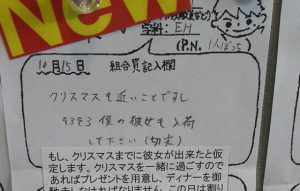 New
学科: EH
(P.N. 1人ぼっち)
10月15日 組合員記入欄
クリスマスも近いことですし
そろそろ僕の彼女も入荷
して下さい(切実)
もし、クリスマスまでに彼女が出来たと仮
定します。クリスマスを一緒に過ごすので
あればプレゼントを用意し、ディナーを御
馳走しなければなりません。この日は割り